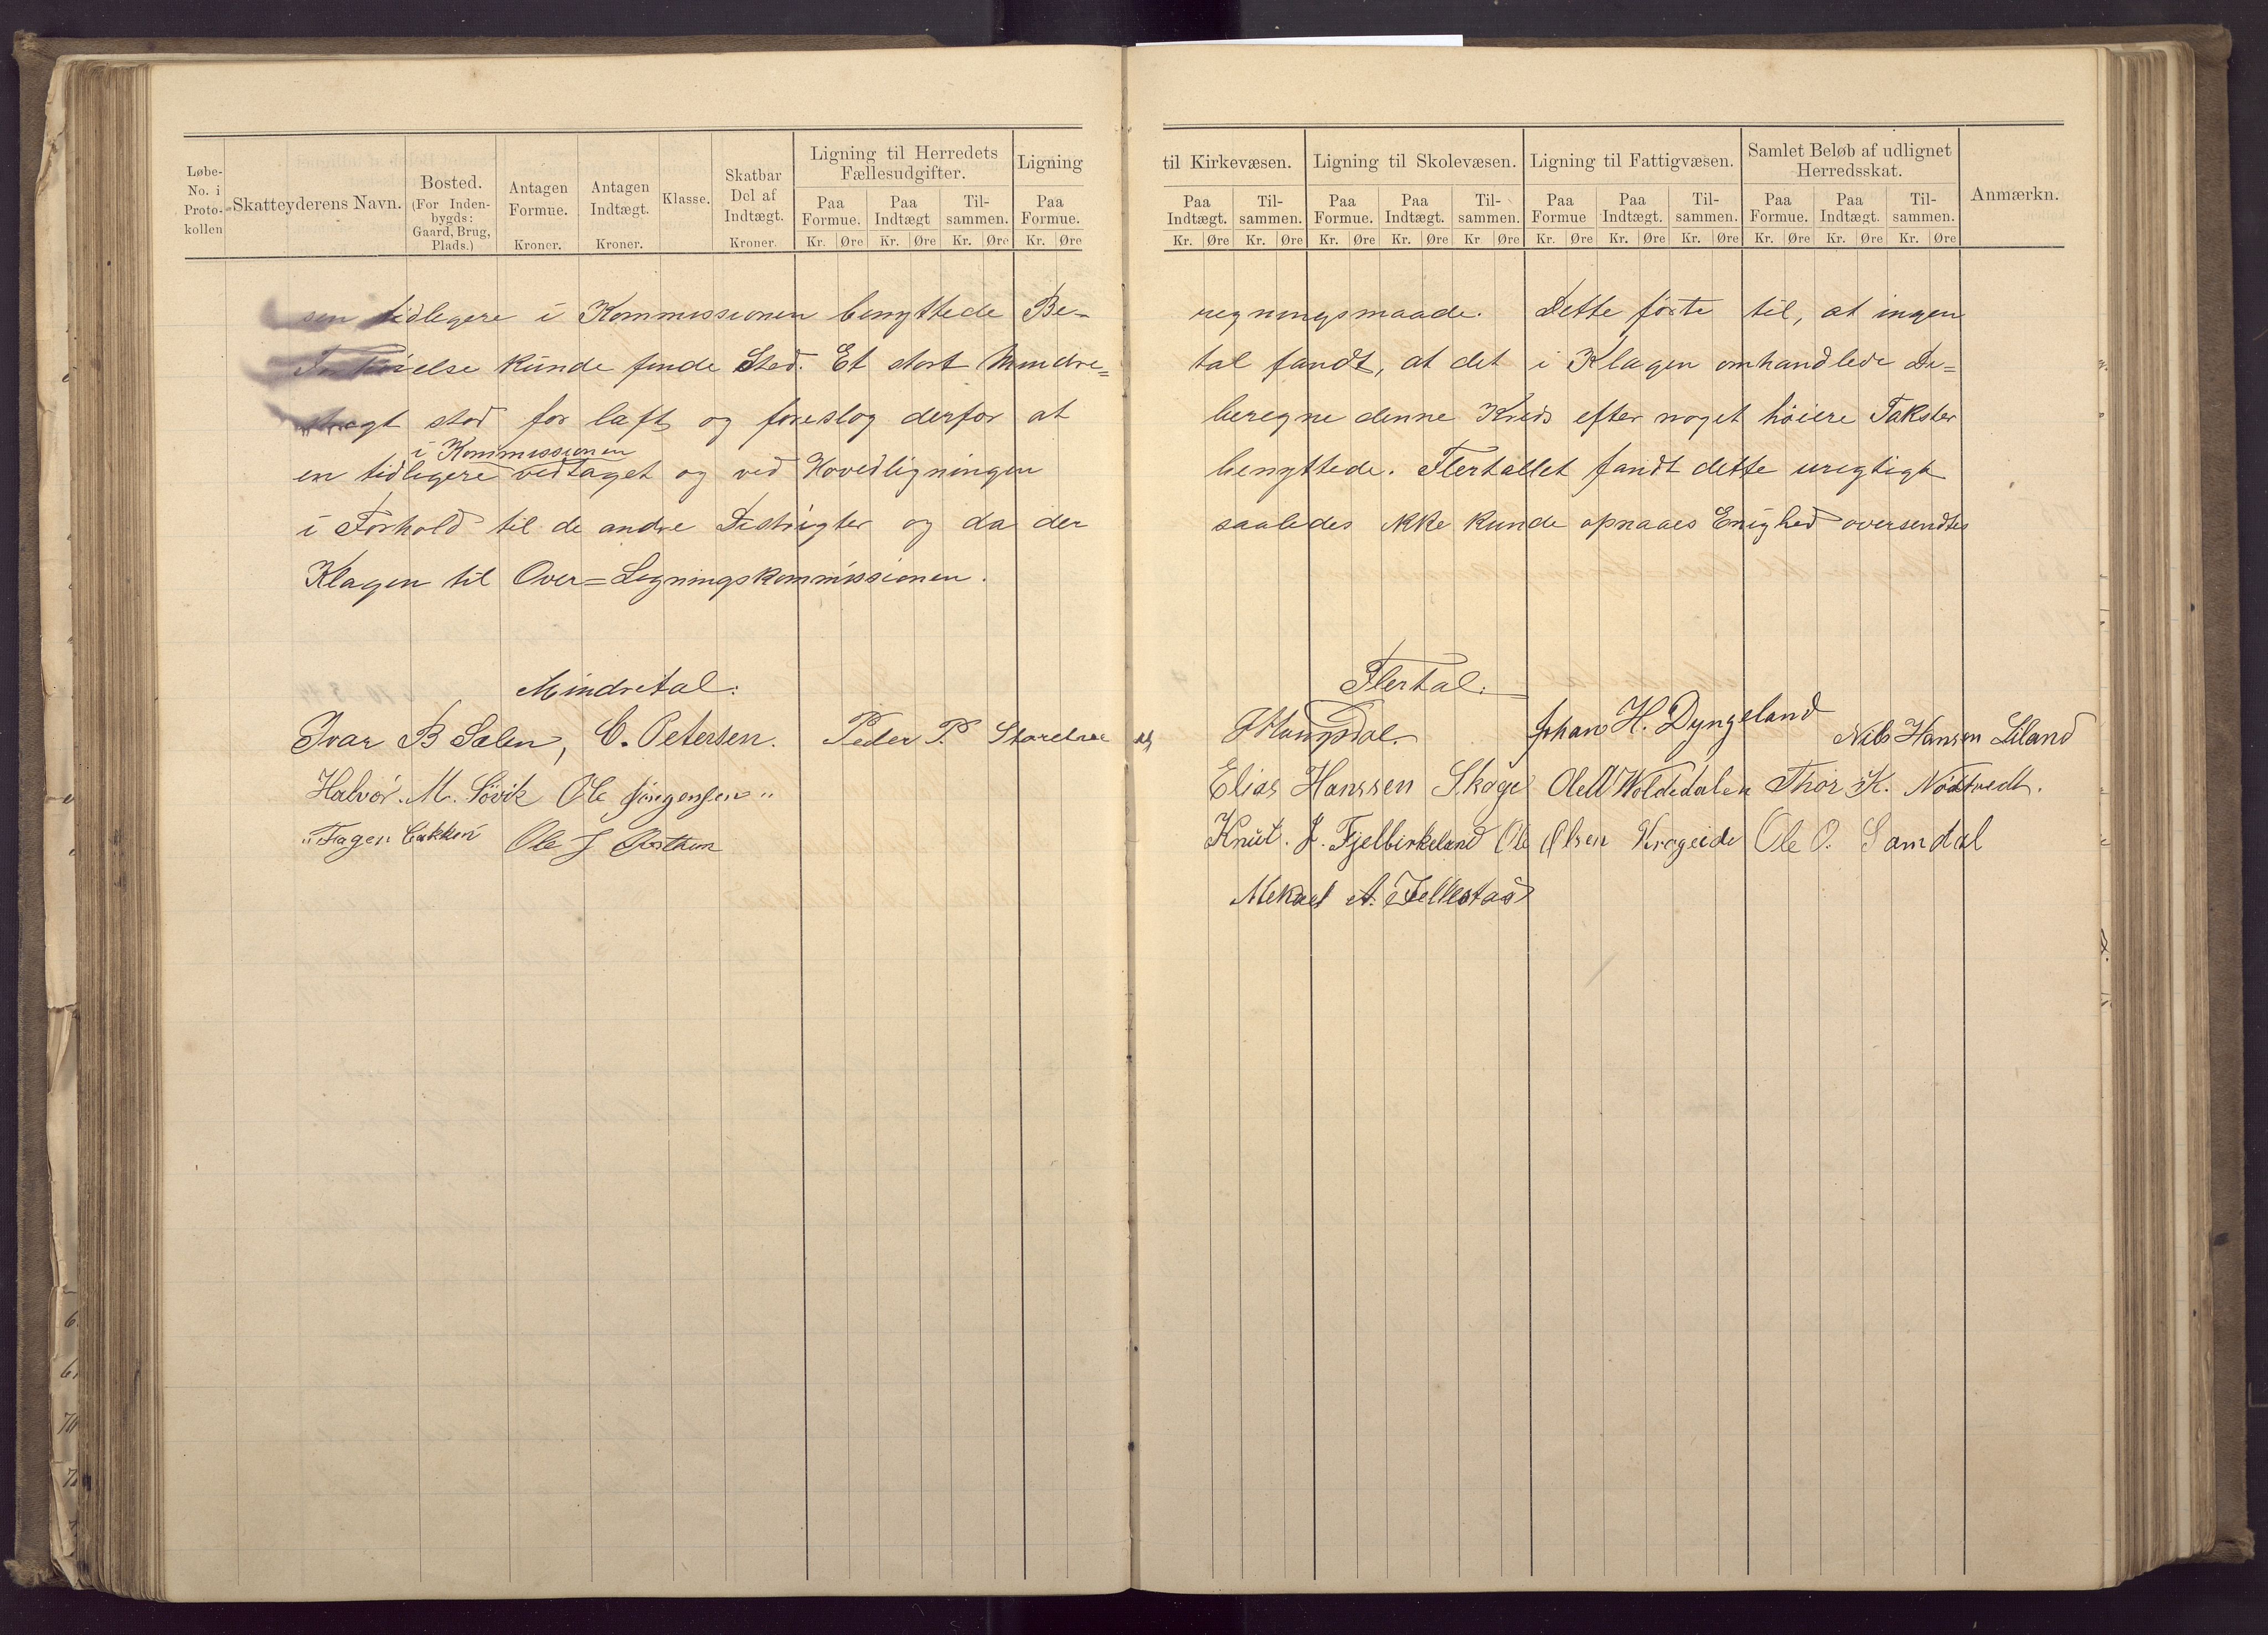 Løbe-
No. i
Proto-
kollen
Skatteyderens Navn.
Bosted.
(For Inden-
bygds:
Gaard, Brug,
Plads.)
Antagen
Formue.
Kroner.
Antagen
Indtægt.
Kroner.
Klasse.
Skatbar
Del af
Indtægt.
Kroner.
Ligning til Herredets
Fællesudgifter.
Paa
Formue.
Paa
Indtægt
Til-
sammen.
Kr. Øre Kr. Øre Kr. Øre
Ligning
Paa
Formue.
Kr. Øre
til Kirkevæsen.
Paa
Indtægt.
Til-
sammen.
Kr. Øre Kr. Øre
Ligning til Skolevæsen.
Paa
Formue.
Paa
Indtægt.
Til-
sammen.
Kr. Øre Kr. Øre Kr. Øre
Ligning til Fattigvæsen.
Paa
Formue
Paa
Indtægt.
Til-
sammen.
Kr. Øre Kr. Øre Kr. Øre
Samlet Beløb af udlignet
Herredsskat.
Paa
Formue.
Paa
Indtægt.
Til-
sammen.
Kr. Øre Kr. Øre Kr. Øre
Anmærkn.
sen tidligere i Kommissionen benyttede Be- regningsmaade. Dette førte til, at ingen
kunde finde Sted. Et stort Mindre= tal fandt, at det i Klagen omhandlede Di=
strigt stod for lavt og foreslog derfor at beregne denne Kreds efter noget høiere Takster
i Kommissionen
en tidligere vedtaget og ved Hovedligningen benyttede. Flertallet fandt dette urigtigt
i Forhold til de andre Distrigter og da der saaledes ikke kunde opnaaes Enighed oversendtes
Klagen til Over=Ligningskommissionen.
Mindretal:
Ivar B Salen, C. Petersen. Peder P.
Halvor. M. Søvik Ole Jörgensen
Ole J
Flertal:
Johan H. Dyngeland Nils Hansen Liland
Elias Hanssen Skoge Ole Thor K. Nödtvedt.
Knut. J. Fjelbirkeland Ole Olsen Krogeide Ole O. Samdal
Mekael A. Tellestad